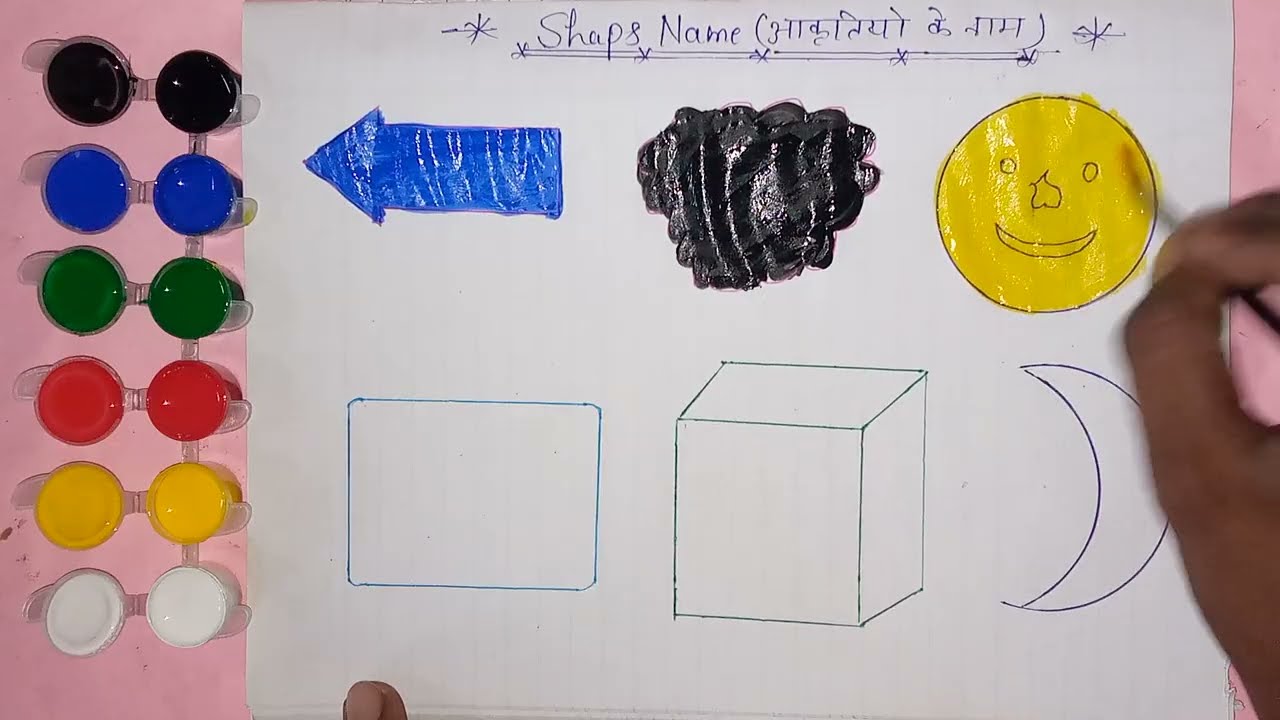 Shaps Name (आकृतियो के नाम)